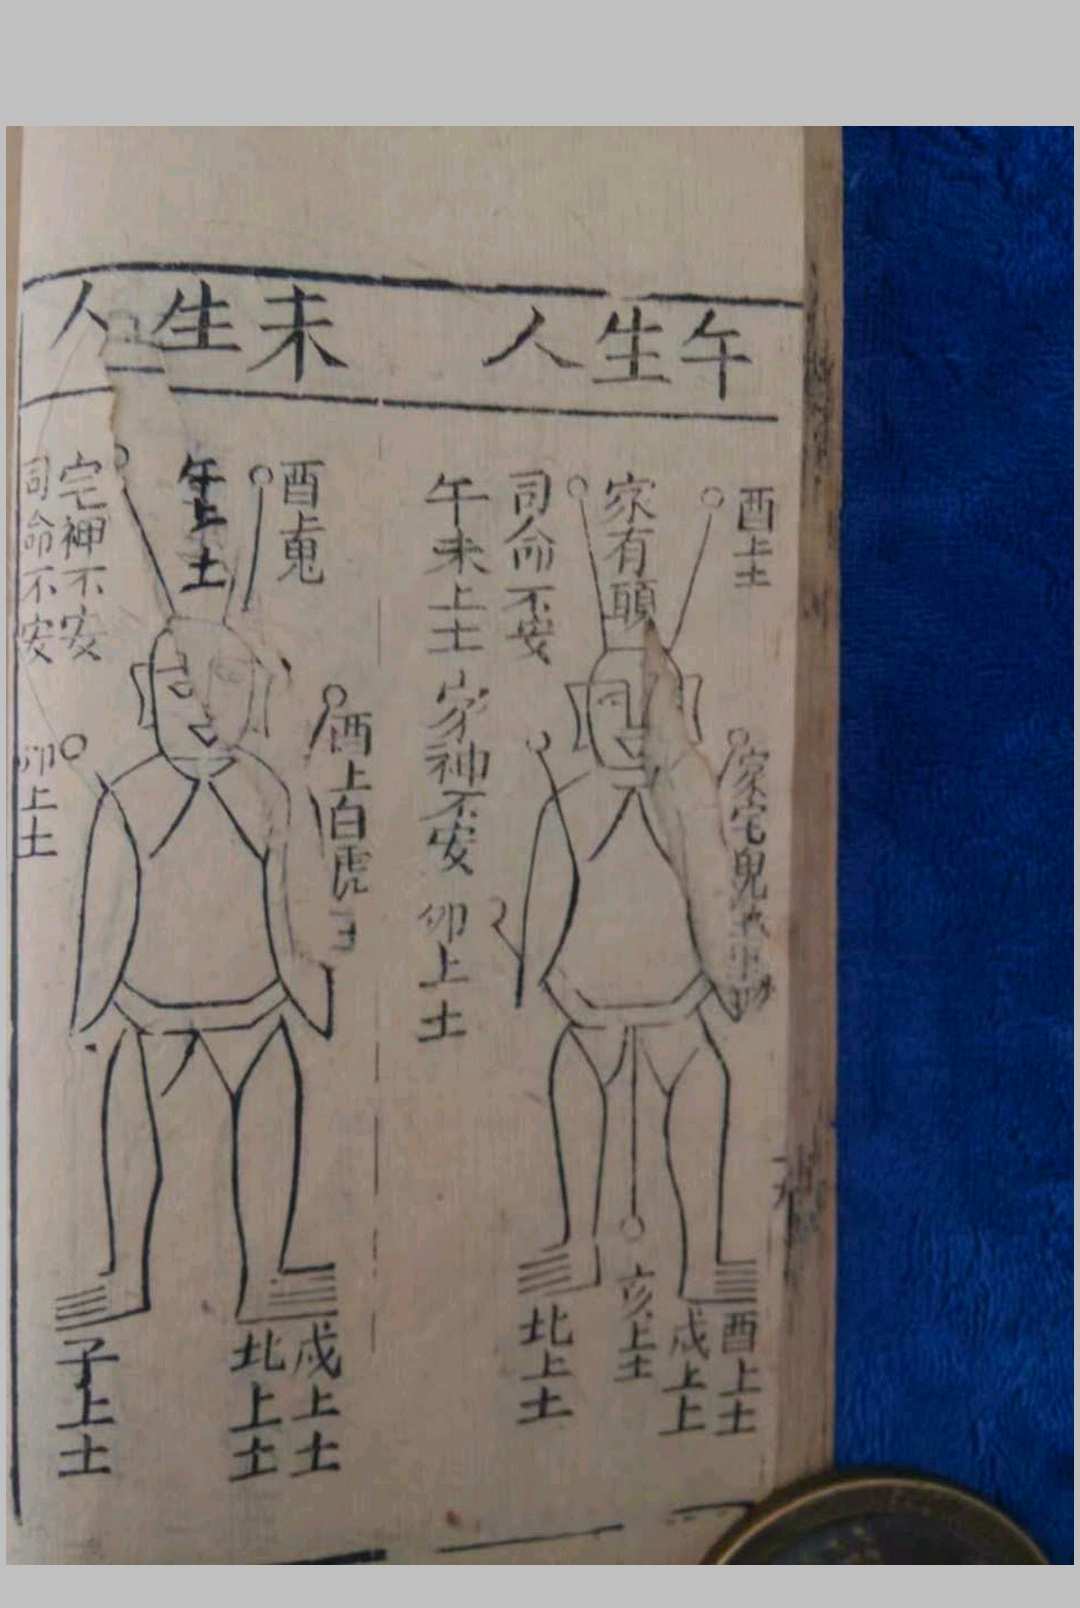 午生人
酉上土
家有頭
司命不安
午未上土 家神不安 卯上土
家宅鬼
酉上土
戌上上
亥上土
北上土
未生人
酉上鬼
午上土
宅神不安
司命不安
酉上白虎
卯上土
戌上土
北上土
子上土